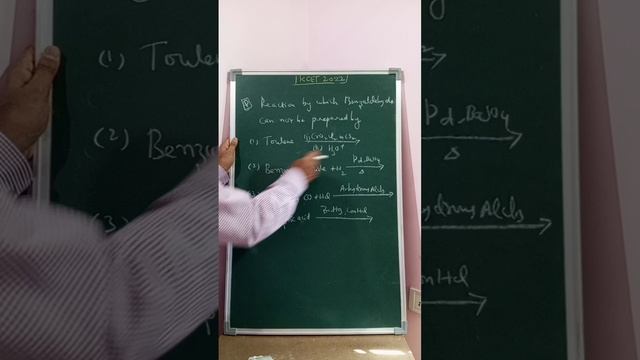 KCET 2022
Reaction by which Benzaldehyde
can not be prepared by
(1) Toulene (i) CrO2Cl2 in CS2
(ii) H3O+
(2) Benzo + H2 Pd-BaSO4
Δ
+ HCl Anhydrous AlCl3
acid Zn-Hg, Con HCl